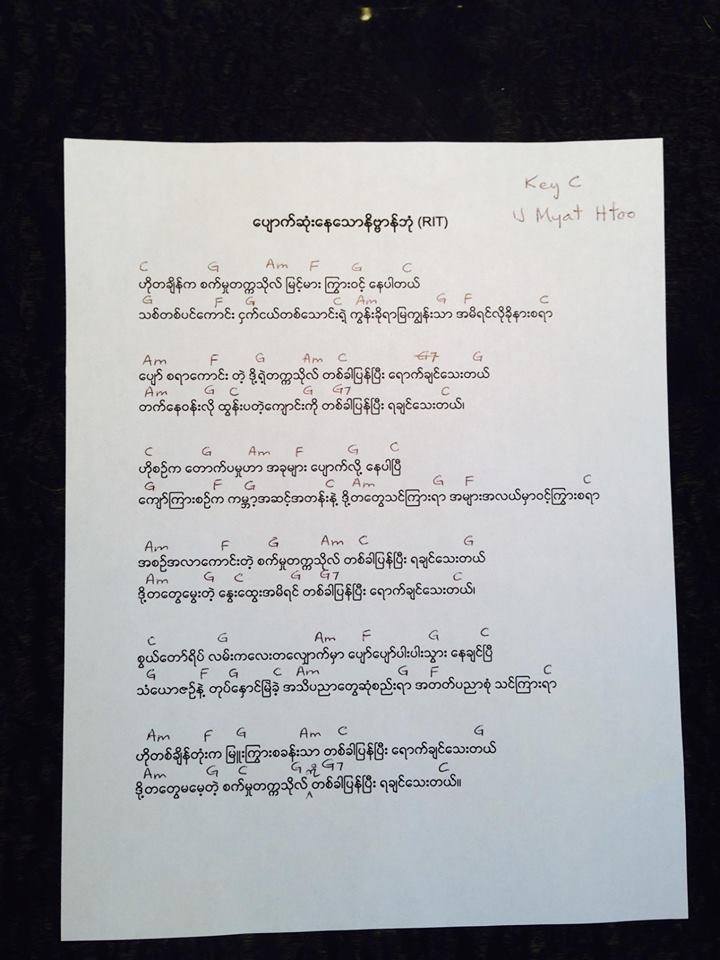 Key C
U Myat Htoo
ပျောက်ဆုံးနေသောနိဗ္ဗာန်ဘုံ (RIT)
C G Am F G C
ဟိုတချိန်က စက်မှုတက္ကသိုလ် မြင့်မား ကြွားဝင့် နေပါတယ်
G F G C Am G F C
သစ်တစ်ပင်ကောင်း ငှက်ငယ်တစ်သောင်းရဲ့ ကွန်းခိုရာမြကျွန်းသာ အမိရင်လိုခိုနားစရာ
Am F G Am C G7 G
ပျော် စရာကောင်း တဲ့ ဒို့ရဲ့တက္ကသိုလ် တစ်ခါပြန်ပြီး ရောက်ချင်သေးတယ်
Am G C G G7 C
တက်နေဝန်းလို ထွန်းပတဲ့ကျောင်းကို တစ်ခါပြန်ပြီး ရချင်သေးတယ်၊
C G Am F G C
ဟိုစဉ်က တောက်ပမှုဟာ အခုများ ပျောက်လို့ နေပါပြီ
G F G C Am G F C
ကျော်ကြားစဉ်က ကမ္ဘာ့အဆင့်အတန်းနဲ့ ဒို့တတွေသင်ကြားရာ အများအလယ်မှာဝင့်ကြွားစရာ
Am F G Am C G
အစဉ်အလာကောင်းတဲ့ စက်မှုတက္ကသိုလ် တစ်ခါပြန်ပြီး ရချင်သေးတယ်
Am G C G G7 C
ဒို့တတွေမွေးတဲ့ နွေးထွေးအမိရင် တစ်ခါပြန်ပြီး ရောက်ချင်သေးတယ်၊
C G Am F G C
စွယ်တော်ရိပ် လမ်းကလေးတလျှောက်မှာ ပျော်ပျော်ပါးပါးသွား နေချင်ပြီ
G F G C Am G F C
သံယောဇဉ်နဲ့ တုပ်နှောင်မြဲခဲ့ အသိပညာတွေဆုံစည်းရာ အတတ်ပညာစုံ သင်ကြားရာ
Am F G Am C G
ဟိုတစ်ချိန်တုံးက မြူးကြွားစခန်းသာ တစ်ခါပြန်ပြီး ရောက်ချင်သေးတယ်
Am G C G ကို G7 C
ဒို့တတွေမမေ့တဲ့ စက်မှုတက္ကသိုလ် တစ်ခါပြန်ပြီး ရချင်သေးတယ်။